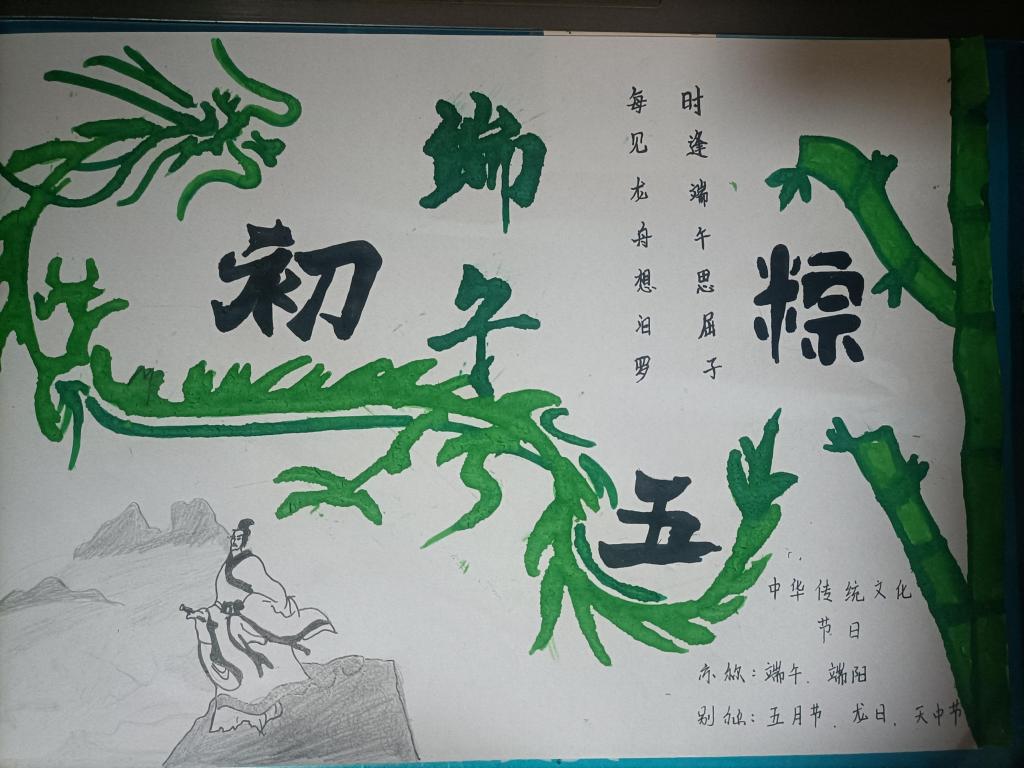 端午
初
五
粽
时逢端午思屈子
每见龙舟想汨罗
中华传统文化
节日
亦称：端午、端阳
别称：五月节、龙日、天中节